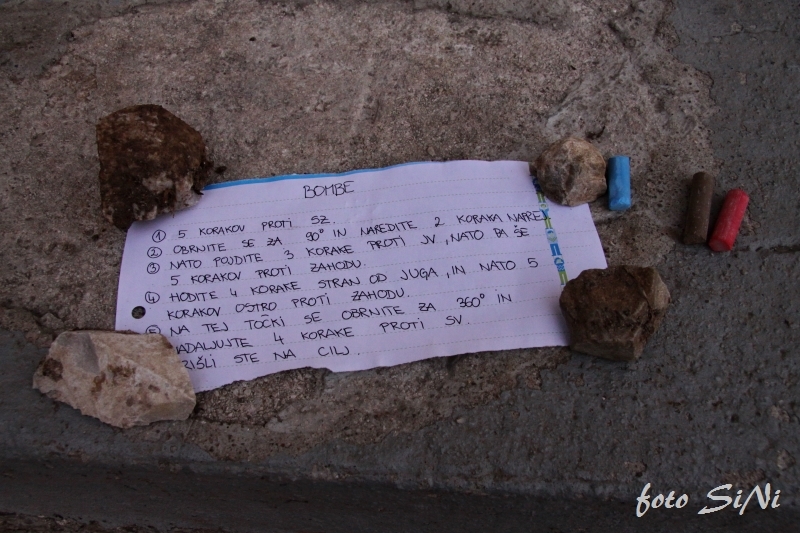 BOMBE
① 5 KORAKOV PROTI SZ.
② OBRNITE SE ZA 90° IN NAREDITE 2 KORAKA NAPREJ
③ NATO POJDITE 3 KORAKE PROTI JV, NATO PA ŠE
5 KORAKOV PROTI ZAHODU.
④ HODITE 4 KORAKE STRAN OD JUGA, IN NATO 5
KORAKOV OSTRO PROTI ZAHODU.
⑤ NA TEJ TOČKI SE OBRNITE ZA 360° IN
NADALJUJTE 4 KORAKE PROTI SV.
PRIŠLI STE NA CILJ.
foto SiNi